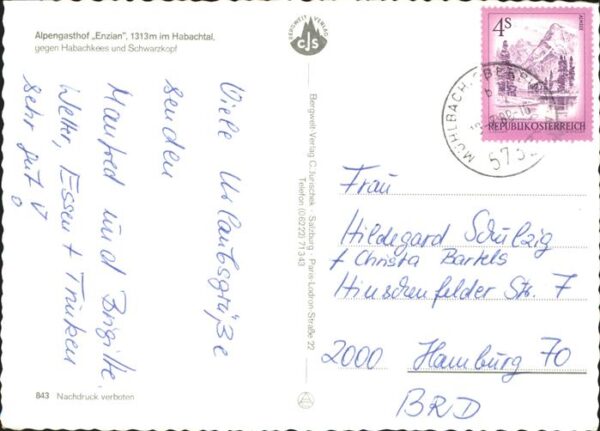 Alpengasthof „Enzian", 1313m im Habachtal,
gegen Habachkees und Schwarzkopf
BERGWELT VERLAG
CJS
4S
ALMSEE
REPUBLIK ÖSTERREICH
MÜHLBACH
b
573
Viele Urlaubsgrüße
senden
Manfred und Brigitte.
Wetter, Essen + Trinken
sehr gut!
Bergwelt-Verlag C. Jurischek · Salzburg · Paris-Lodron-Straße 22
Telefon (06222) 71343
Frau
Hildegard Schulzig
+ Christa Bartels
Hinschenfelder Str. 7
2000 Hamburg 70
BRD
843 Nachdruck verboten